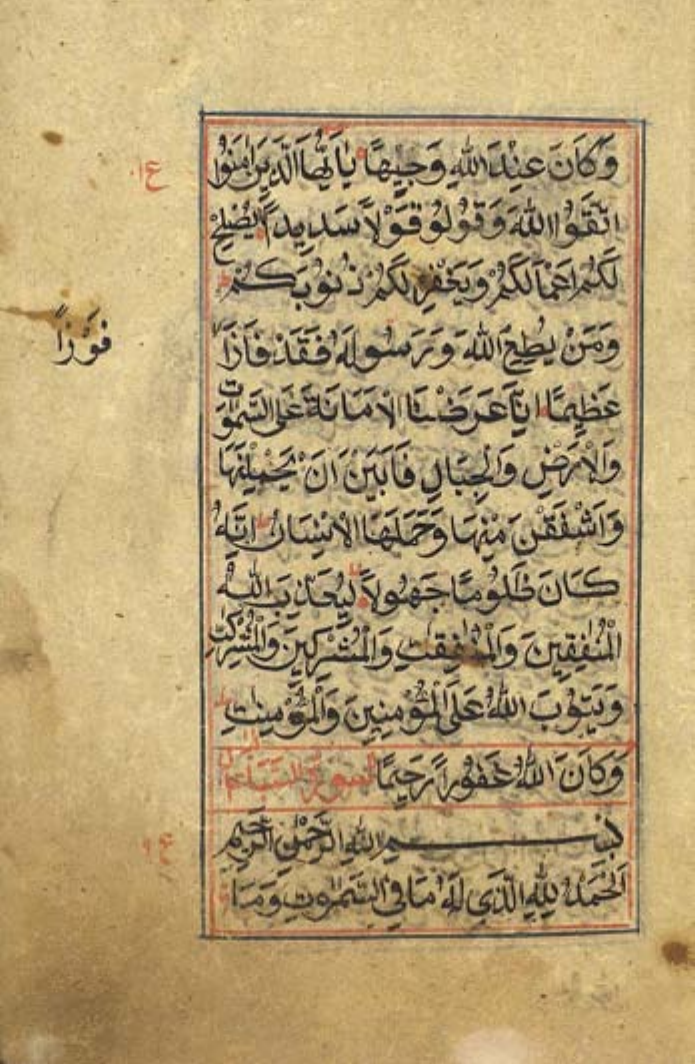 وَكَانَ عِنْدَ اللهِ وَجِيهًا يَا أَيُّهَا الَّذِينَ اٰمَنُوا
اتَّقُوا اللهَ وَقُولُو قَوْلًا سَدِيدًا يُصْلِحْ
لَكُمْ اَعْمَالَكُمْ وَيَغْفِرْ لَكُمْ ذُنُوبَكُمْ
وَمَنْ يُطِعِ اللهَ وَرَسُولَهُ فَقَدْ فَازَا
فَوْزًا
عَظِيمًا اِنَّا عَرَضْنَا الْاَمَانَةَ عَلَى السَّمٰوٰتِ
وَالْاَرْضِ وَالْجِبَالِ فَاَبَيْنَ اَنْ يَحْمِلْنَهَا
وَاَشْفَقْنَ مِنْهَا وَحَمَلَهَا الْاِنْسَانُ اِنَّهُ
كَانَ ظَلُومًا جَهُولًا لِيُعَذِّبَ اللهُ
الْمُنٰفِقِينَ وَالْمُنٰفِقٰتِ وَالْمُشْرِكِينَ وَالْمُشْرِكٰتِ
وَيَتُوبَ اللهُ عَلَى الْمُؤْمِنِينَ وَالْمُؤْمِنٰتِ
وَكَانَ اللهُ غَفُورًا رَحِيمًا سورة السبا
بِسْمِ اللهِ الرَّحْمٰنِ الرَّحِيمِ
اَلْحَمْدُ لِلهِ الَّذِي لَهُ مَا فِي السَّمٰوٰتِ وَمَا